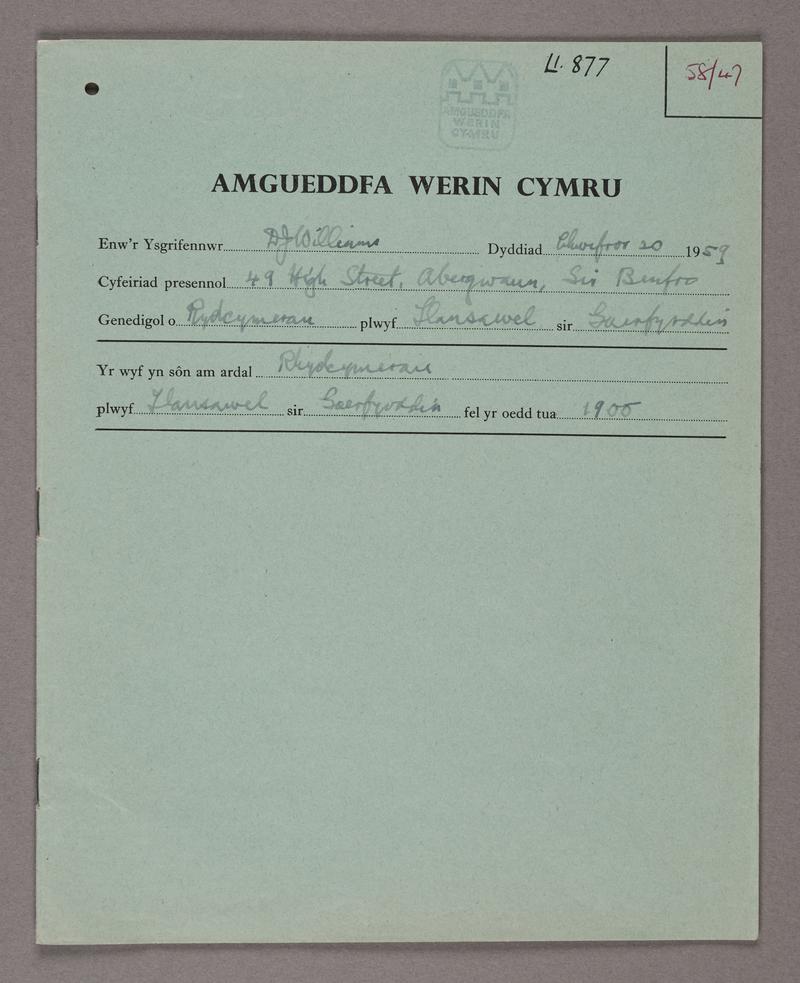 Ll. 877
58/47
AMGUEDDFA
WERIN
CYMRU
AMGUEDDFA WERIN CYMRU
Enw'r Ysgrifennwr DJ Williams Dyddiad Chwefror 20 1959
Cyfeiriad presennol 49 High Street, Abergwaun, Sir Benfro
Genedigol o Rydcymerau plwyf Llansawel sir Gaerfyrddin
Yr wyf yn sôn am ardal Rhydcymerau
plwyf Llansawel sir Gaerfyrddin fel yr oedd tua 1900